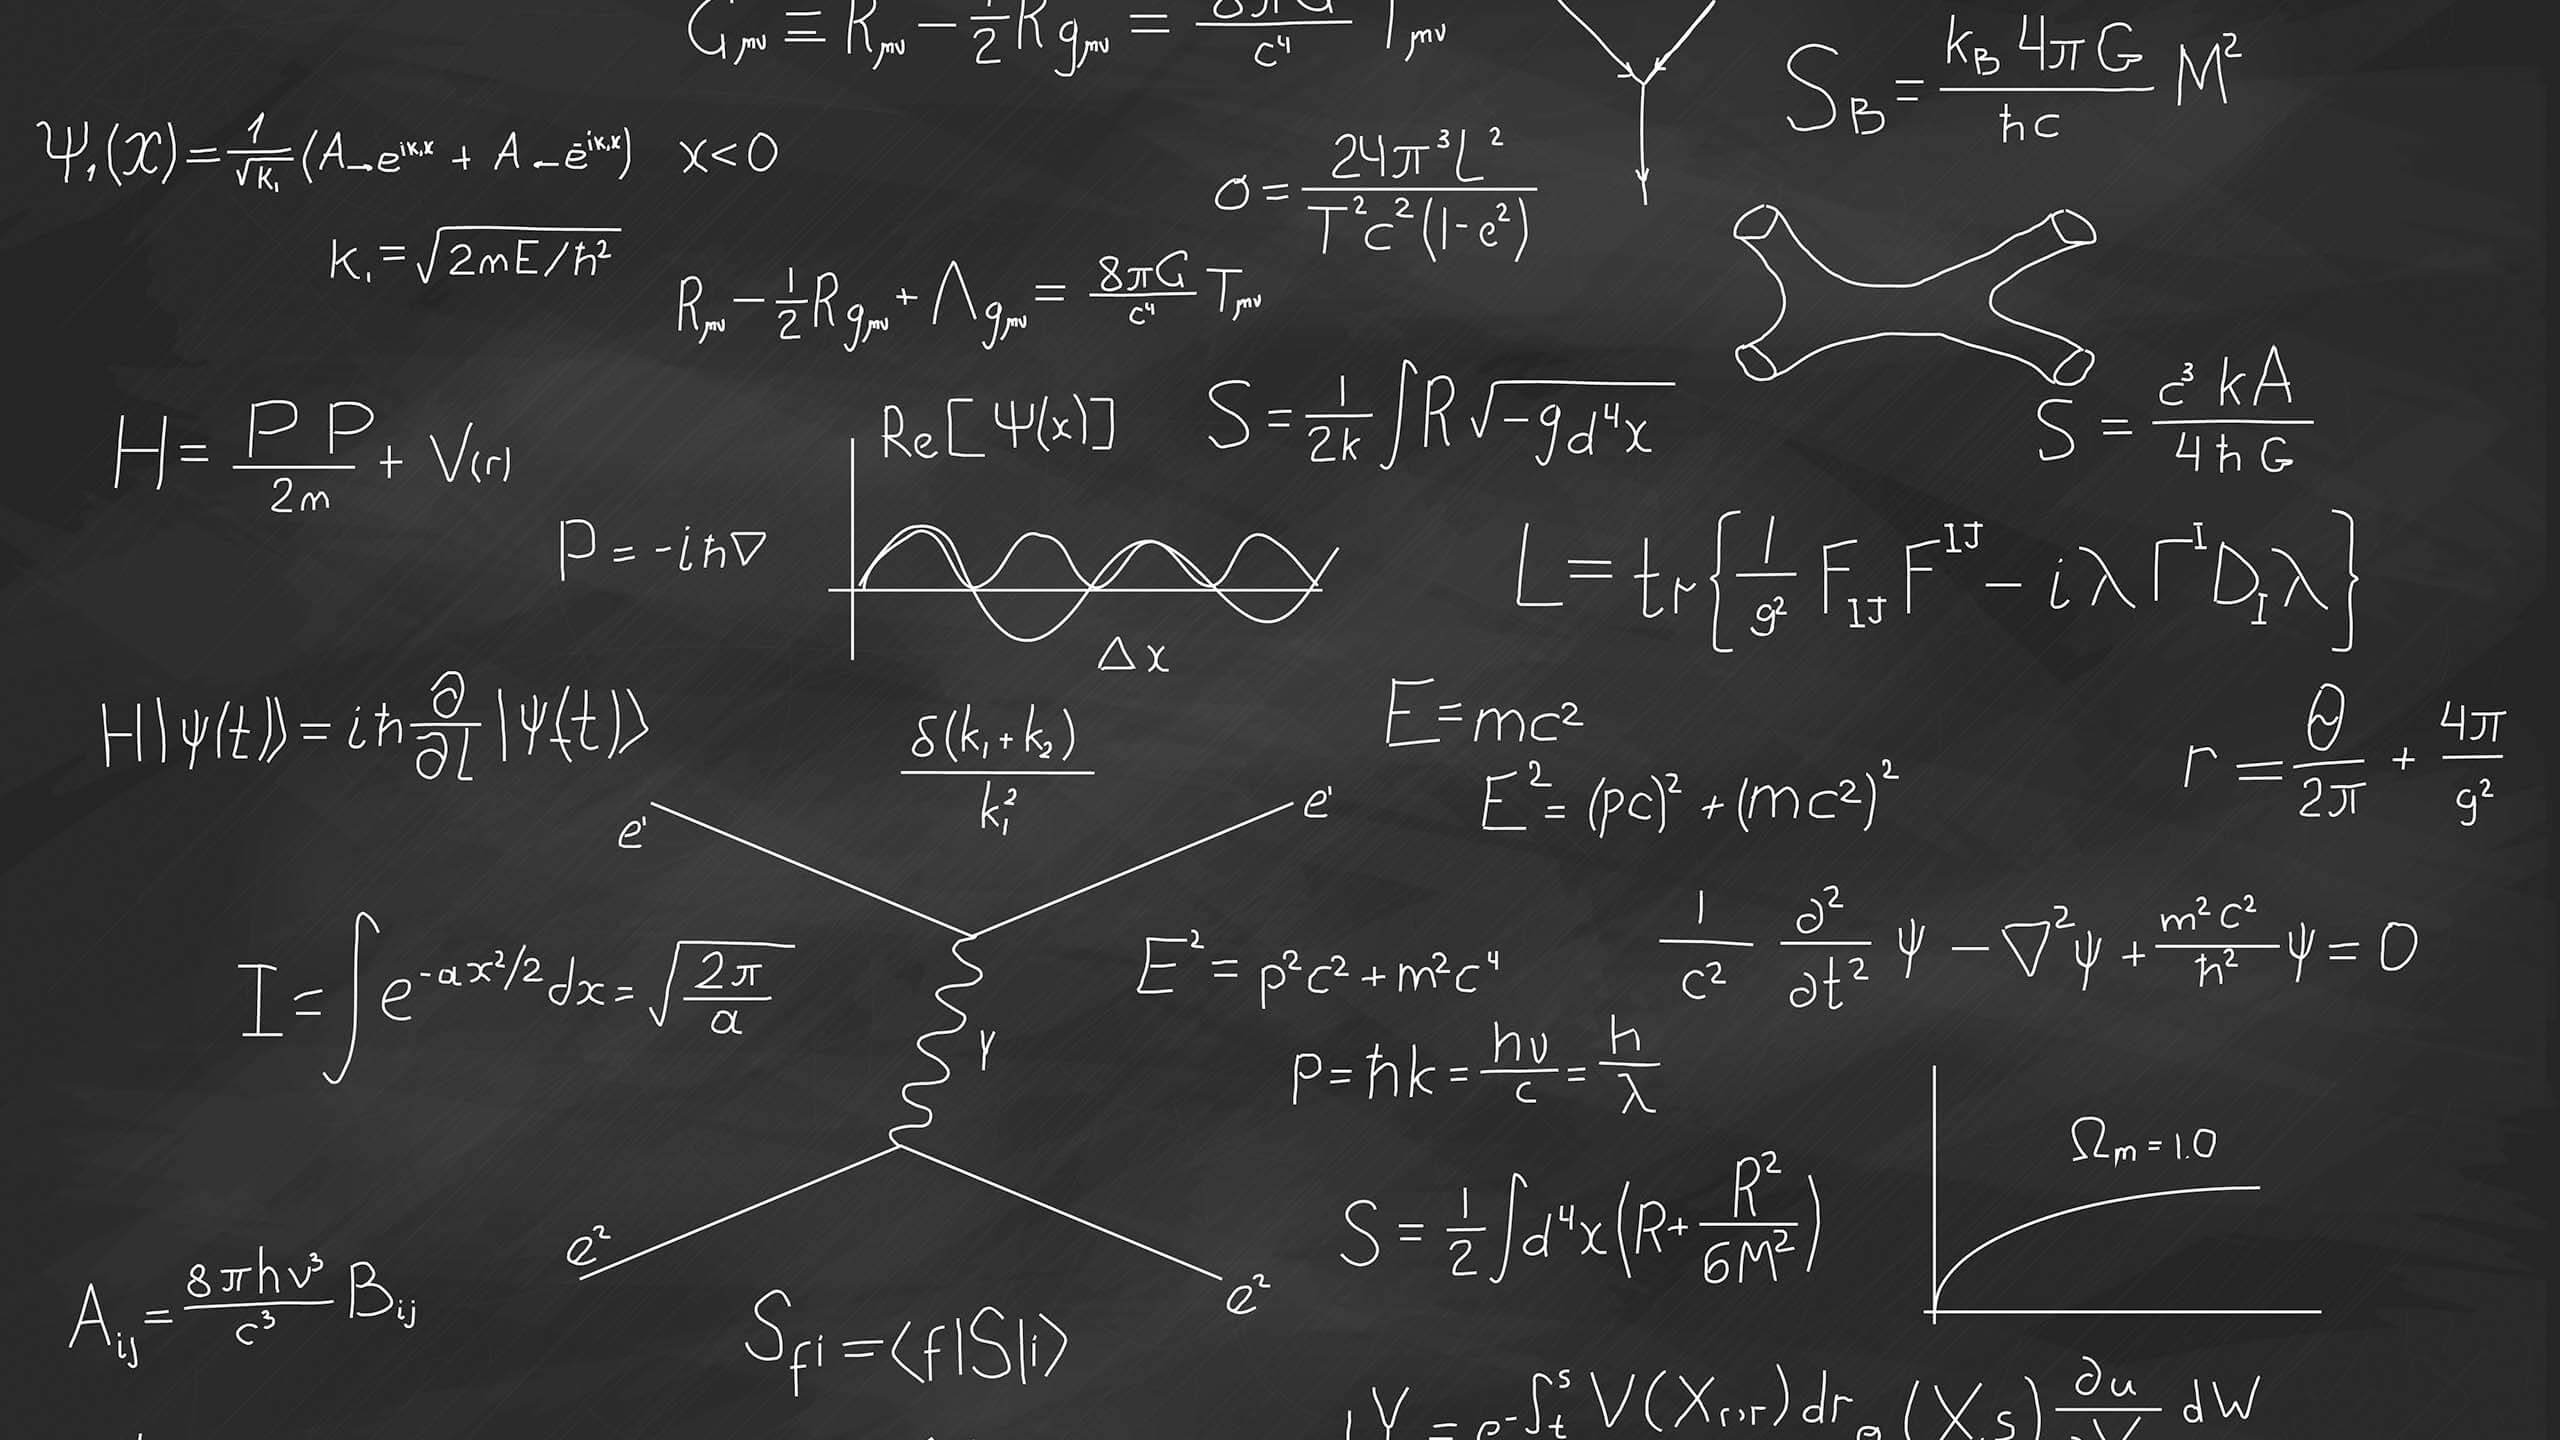 G_μν ≡ R_μν − 1/2 R g_μν = 8πG/c⁴ T_μν
S_B = k_B 4πG/ħc M²
Ψ₁(x) = 1/√k₁ (A→e^{ik₁x} + A←e^{-ik₁x}) x<0
σ = 24π³L²/T²c²(1-e²)
k₁ = √2mE/ħ²
R_μν − 1/2 R g_μν + Λg_μν = 8πG/c⁴ T_μν
H = P P/2m + V(r)
Re[Ψ(x)]
S = 1/2k ∫R√-g d⁴x
S = c³kA/4ħG
P = -iħ∇
L = tr{1/g² F_IJ F^IJ − iλΓ^I D_I λ}
Δx
H|ψ(t)⟩⟩ = iħ ∂/∂t |ψ(t)⟩⟩
δ(k₁+k₂)/k₁²
E=mc²
E²=(pc)²+(mc²)²
r = θ/2π + 4π/g²
e¹ e¹
I = ∫e^{-ax²/2}dx = √2π/a
γ
E² = p²c²+m²c⁴
1/c² ∂²/∂t² ψ − ∇²ψ + m²c²/ħ² ψ = 0
P=ħk=hν/c=h/λ
Ωm=1.0
S = 1/2 ∫d⁴x(R+R²/6M²)
e² e²
A_ij = 8πhν³/c³ B_ij
S_fi=⟨f|S|i⟩
Y = e^{-∫_t^s V(X_r,r)dr} (X,s) ∂u/∂X dW